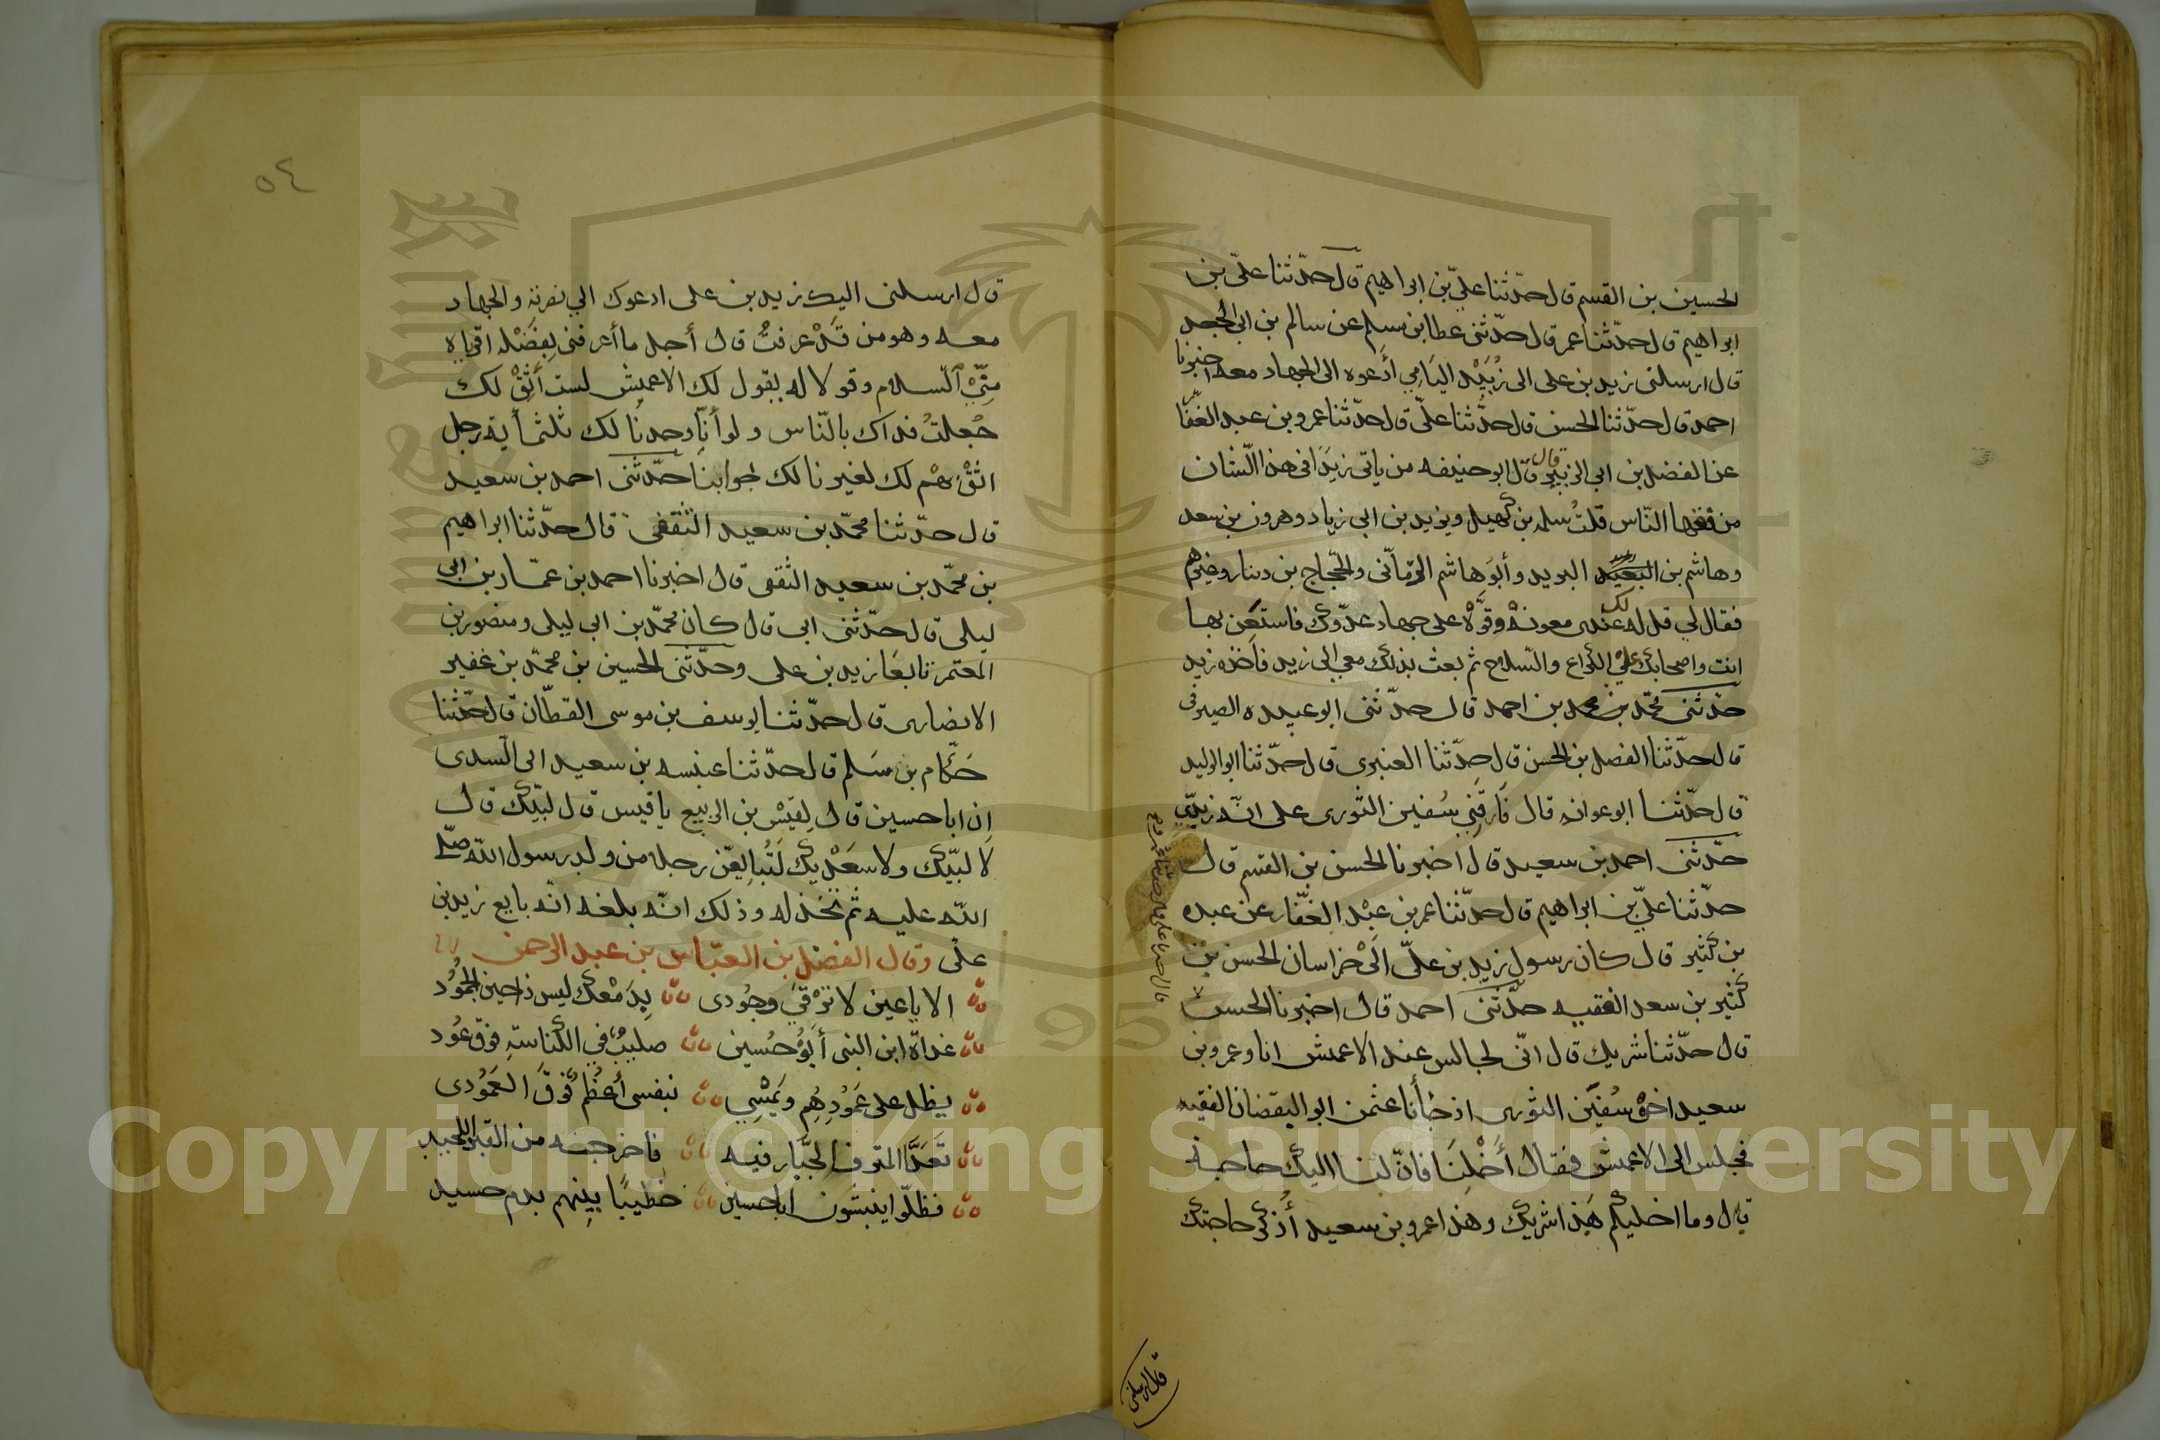 الحسين بن القسم قال حدّثنا عليّ بن ابراهيم قال حدّثنا عليّ بن
ابراهيم قال حدّثنا عمر قال حدّثنى عطا بن مسلم عن سالم بن ابى الجعد
قال ارسلنى زيد بن على الى زُبَيْد اليَامِي أدعوه الى الجهاد معه اخبرنا
احمد قال حدّثنا الحسن قال حدّثنا علىّ قال حدّثنا عمرو بن عبد الغفّار
عن الفضل بن ابى الزبير قال قال ابو حنيفه من ياتى زيدًا فى هذا الشان
من فقها النّاس قلتُ سلمه بن كهيل ويزيد بن ابى زياد وهرون بن سعد
وهاشم بن البريد وأبوهاشم الرّمّانى والحجّاج بن دينار وغيرهم
فقال لي قل له لك عندى معونة وقوّة على جهاد عدوّك فاستعِن بها
انت واصحابك في الكراع والسّلاح ثم بعث بذلك معي الى زيد فاخذه زيد
حدّثنى محمّد بن محمد بن احمد قال حدّثنى ابو عبيده الصيرفى
قال حدّثنا الفضل بن الحسن قال حدّثنا العنبرى قال حدّثنا ابو الوليد
قال حدّثنا ابو عوانه قال فَارقَنِي سُفين الثورى على انّه زيديّ
حدّثنى احمد بن سعيد قال اخبرنا الحسن بن القسم قال
حدّثنا عليّ بن ابراهيم قال حدّثنا عمر بن عبْد الغفّار عن عبده
بن كثير قال كان رسول زيد بن عليّ الَىْ خراسان الحسن بن
كثير بن سعد الفقيه حدّثنى احمد قال اخبرنا الحسن
قال حدّثنا شريك قال انّى لجالس عند الاعمش انا وعمرو بن
سعيد اخو سُفيَن الثورى اذ جَأنا عثمن ابو اليقضان الفقيه
فجلس الى الاعمش فقال أَخْلِنَا فانّ لنا اليك حاجة
قال وما اخليكم هَذا شريك وهذا عمرو بن سعيد أذكر حاجتك
قال ارسلنى
٥٤
قال ارسلنى اليك زيد بن على ادعوك الي نصرته والجهاد
معه وهو من قَدْ عرفتُ قال أجل ما أعرفنى بِفَضْله اقرياه
مِنّي السّلام وقولا له يقول لك الاعمش لست أَثِقْ لك
جُعِلتُ فداك بالنّاس ولو أنّا وجدنا لك ثلثمأية رجل
اثقْ بهْم لك لغيرنا لك جوابنا حدّثنى احمد بن سعيد
قال حدّثنا محمّد بن سعيد الثقفى قال حدّثنا ابراهيم
بن محمّد بن سعيد الثقفى قال اخبرنا احمد بن عمّار بن ابى
ليلى قال حدّثنى ابى قال كان محمّد بن ابى ليلى ومنصور بن
المعتمر تابعَا زيد بن على وحدّثنى الحسين بن محمّد بن عفير
الانصارى قال حدّثنا يوسف بن موسى القطّان قال حدّثنا
حَكّام بن سَلم قال حدّثنا عنبسه بن سعيد الى السّدى
اِن ابا حسين قال لِقَيْسْ بن الربيع ياقيس قال لبّيك قال
لا لبّيك ولا سعَدْيك لَتُبايعنّ رجلا من ولد رسول اللّه صلّى
اللّه عليه ثم تخذله وذلك انّه بلغه انّه بايع زيد بن
علىٰ وقال الفضل بن العبّاس بن عبد الرحمن
الا ياعين لا ترْقيِ وجُودى بِدَمْعك ليس ذا حين الجمُوُد
غداة ابن النبى أبُو حُسين صليبٌ في الكناسة فوق عُود
يظل على عَمُوُدِهِم ويَمْسِي بنفسى أعظُم فَوْقَ العَمُوُدى
تَعدَّا المترف الجبّار فيه فاخرجه من القبر اللحيد
فظلّوا ينبشون أبا حسين خطيبًا بينهم بدم حسيد
Copyright © King Saud University
1957